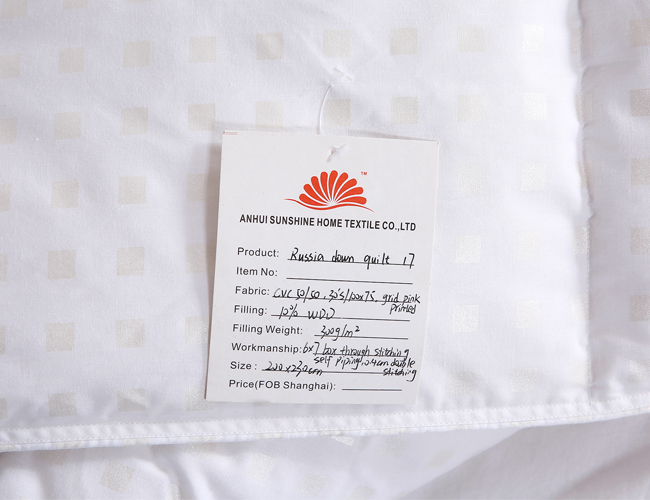 TM
ANHUI SUNSHINE HOME TEXTILE CO.,LTD
Product: Russia down quilt 17
Item No:
Fabric: CVC 50/50, 30's/100x75, grid pink
printed
Filling: 10% WDD
Filling Weight: 300g/m²
Workmanship: 6x7 box through stitching
self piping, 0.4cm double
stitching
Size: 200x230cm
Price(FOB Shanghai):